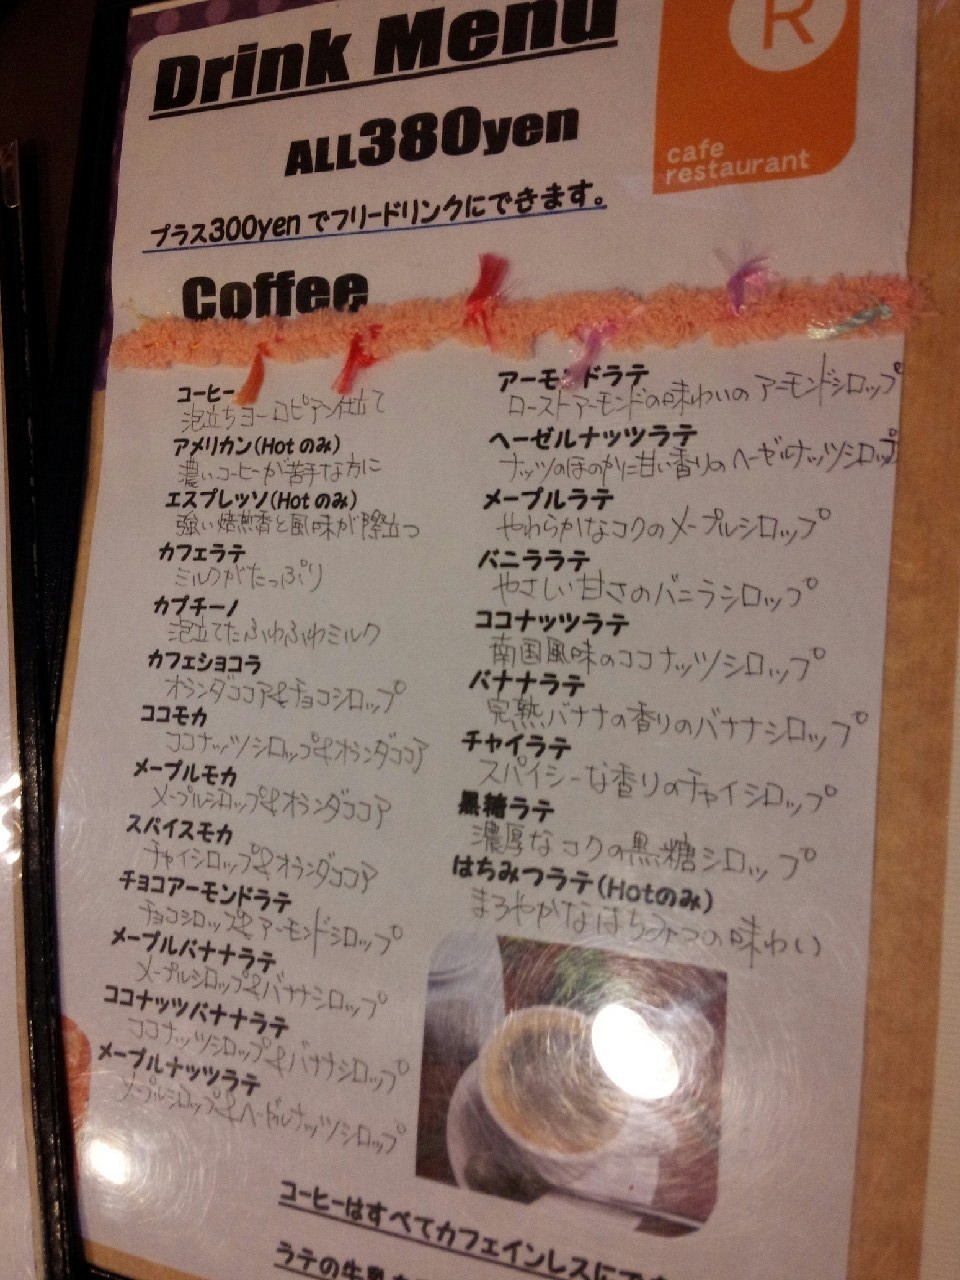 Drink Menu
R
cafe
restaurant
ALL380yen
プラス300yenでフリードリンクにできます。
Coffee
コーヒー
泡立ちヨーロピアン仕立て
アメリカン(Hotのみ)
濃いコーヒーが苦手な方に
エスプレッソ(Hotのみ)
強い焙煎香と風味が際立つ
カフェラテ
ミルクがたっぷり
カプチーノ
泡立てたふわふわミルク
カフェショコラ
オランダココア&チョコシロップ
ココモカ
ココナッツシロップ&オランダココア
メープルモカ
メープルシロップ&オランダココア
スパイスモカ
チャイシロップ&オランダココア
チョコアーモンドラテ
チョコシロップ&アーモンドシロップ
メープルバナナラテ
メープルシロップ&バナナシロップ
ココナッツバナナラテ
ココナッツシロップ&バナナシロップ
メープルナッツラテ
メープルシロップ&ヘーゼルナッツシロップ
アーモンドラテ
ローストアーモンドの味わいのアーモンドシロップ
ヘーゼルナッツラテ
ナッツのほのかに甘い香りのヘーゼルナッツシロップ
メープルラテ
やわらかなコクのメープルシロップ
バニララテ
やさしい甘さのバニラシロップ
ココナッツラテ
南国風味のココナッツシロップ
バナナラテ
完熟バナナの香りのバナナシロップ
チャイラテ
スパイシーな香りのチャイシロップ
黒糖ラテ
濃厚なコクの黒糖シロップ
はちみつラテ(Hotのみ)
まろやかなはちみつの味わい
コーヒーはすべてカフェインレスにでき
ラテの牛乳